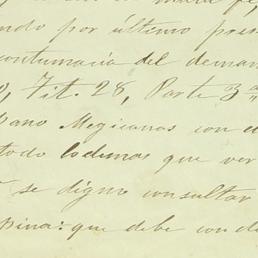 ndo por último pres
contumacia del deman
, Tit. 28, Parte 3ª
pano Megicanas con e
todo lo demas que ver
se digne consultar
pina: que debe con de